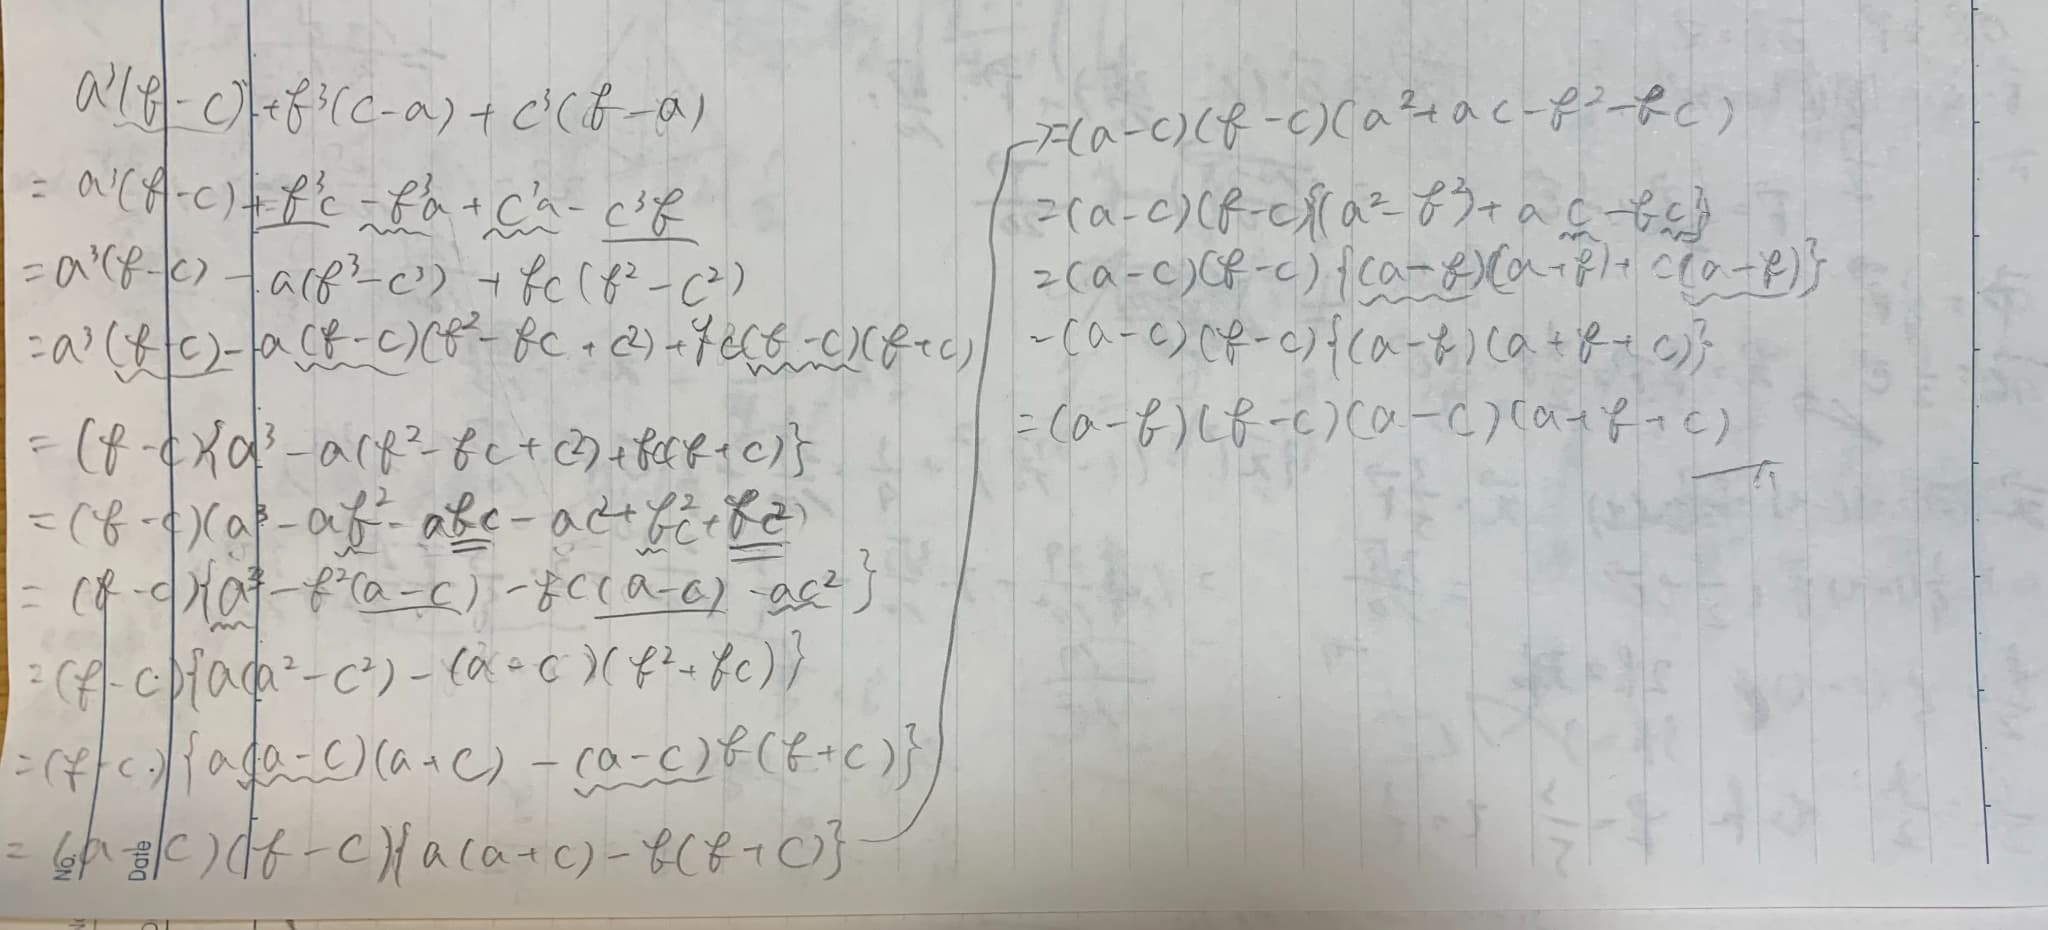 a³(b-c)+b³(c-a)+c³(b-a)
= a³(b-c)+b³c-b³a+c³a-c³b
=a³(b-c)-a(b³-c³)+bc(b²-c²)
=a³(b-c)-a(b-c)(b²-bc+c²)+bc(b-c)(b+c)
=(b-c){a³-a(b²-bc+c²)+bc(b+c)}
=(b-c)(a³-ab²-abc-ac²+b²c+bc²)
=(b-c){a³-b²(a-c)-bc(a-c)-ac²}
=(b-c){a(a²-c²)-(a-c)(b²+bc)}
=(b-c){a(a-c)(a+c)-(a-c)b(b+c)}
=(a-c)(b-c){a(a+c)-b(b+c)}
No.
Date
=(a-c)(b-c)(a²+ac-b²-bc)
=(a-c)(b-c){(a²-b²)+ac-bc}
=(a-c)(b-c){(a-b)(a+b)+c(a-b)}
=(a-c)(b-c){(a-b)(a+b+c)}
=(a-b)(b-c)(a-c)(a+b+c)